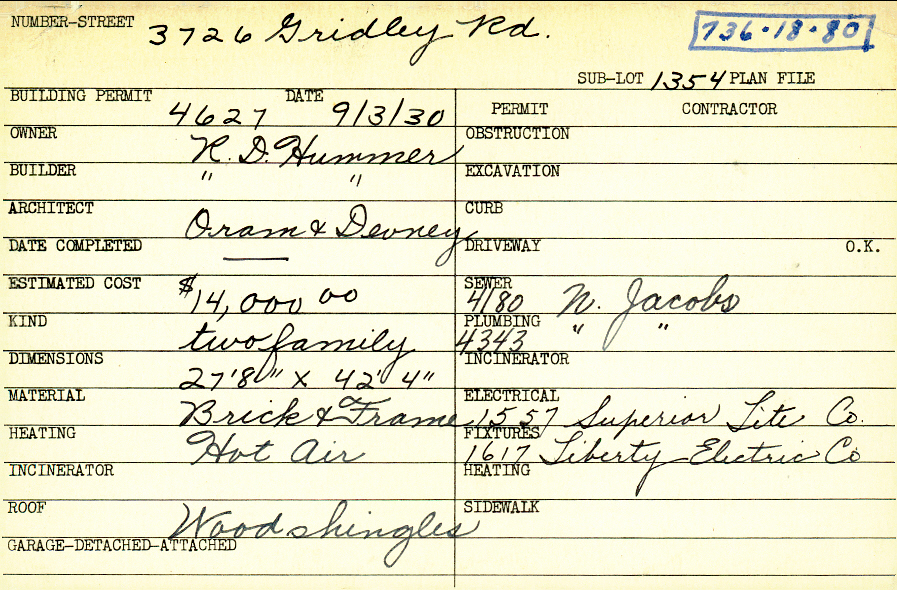 NUMBER-STREET 3726 Gridley Rd. 736-18-80
SUB-LOT 1354 PLAN FILE
BUILDING PERMIT 4627 DATE 9/3/30
PERMIT CONTRACTOR
OWNER R. D. Hummer
OBSTRUCTION
BUILDER " "
EXCAVATION
ARCHITECT Oram & Devney
CURB
DATE COMPLETED —
DRIVEWAY O.K.
ESTIMATED COST $14,000 00
SEWER 4180 N. Jacobs
KIND two family
PLUMBING 4343 " "
DIMENSIONS 27'8" X 42' 4"
INCINERATOR
MATERIAL Brick & Frame
ELECTRICAL 1557 Superior Lite Co.
HEATING Hot Air
FIXTURES 1617 Liberty Electric Co
INCINERATOR
HEATING
ROOF Wood shingles
SIDEWALK
GARAGE-DETACHED-ATTACHED